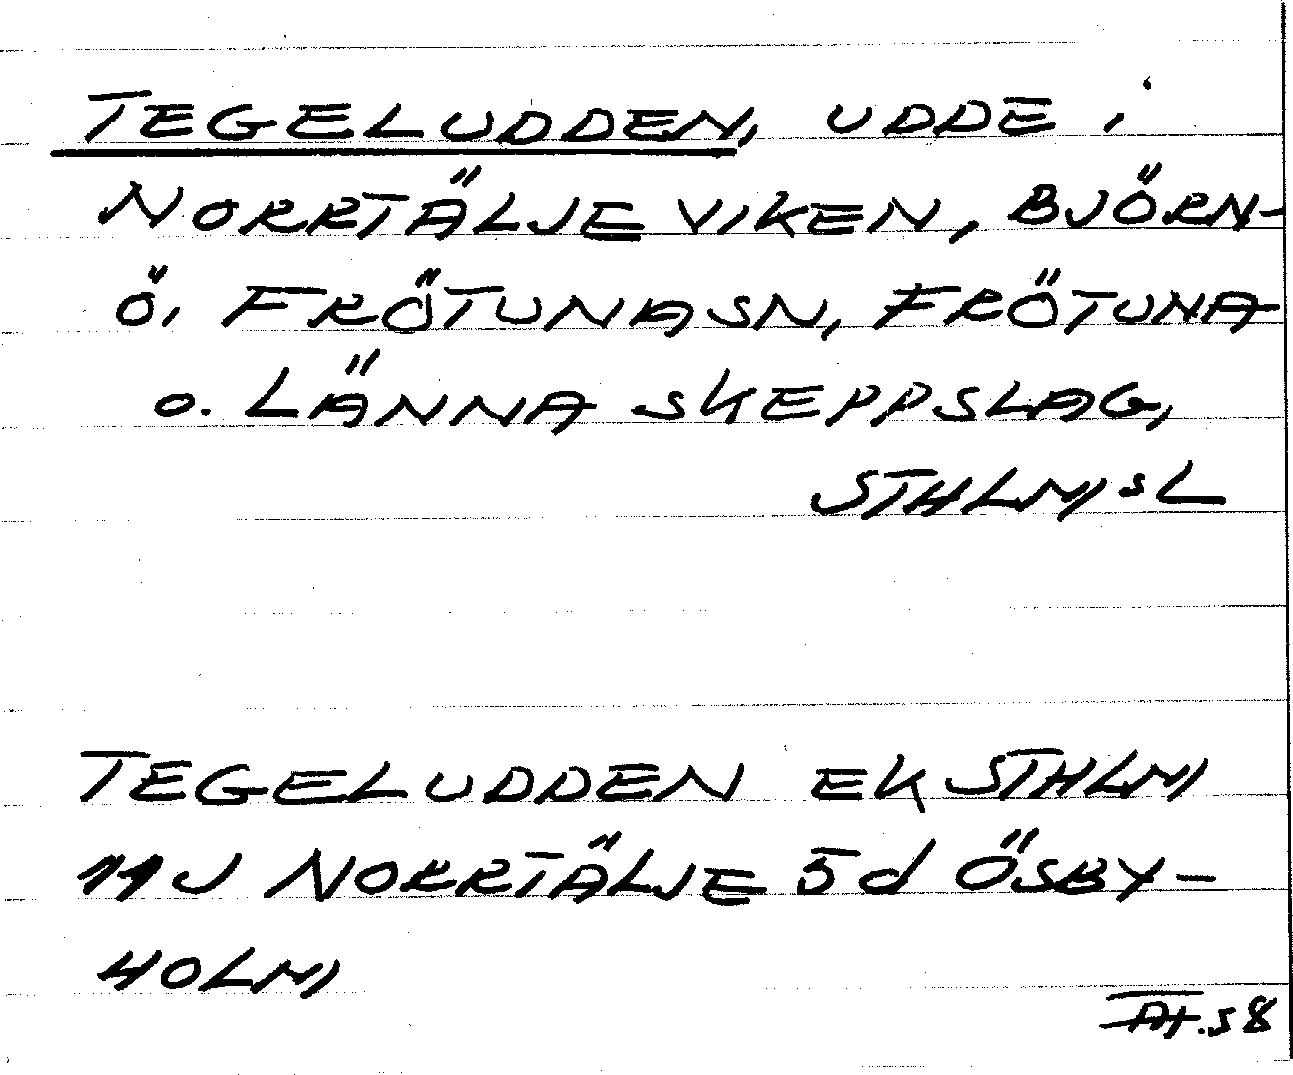 TEGELUDDEN, UDDE i
NORRTÄLJEVIKEN, BJÖRN-
Ö, FRÖTUNA SN, FRÖTUNA
O. LÄNNA SKEPPSLAG,
STHLMSL
TEGELUDDEN EK STHLM
11J NORRTÄLJE 5d ÖSBY-
HOLM
58